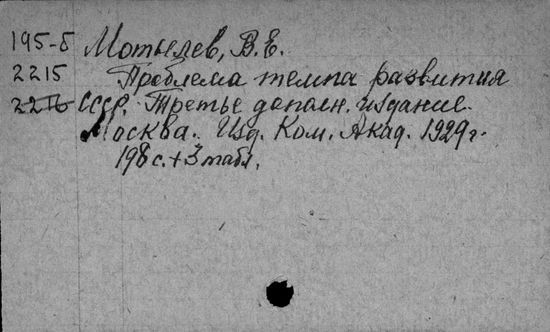 195-б Мотылев, В.Е.
2215 Проблема темпа развития
2216 СССР. Третье дополн. издание.
Москва. Изд. Ком. Акад. 1929 г.
198 с. + 3 табл.